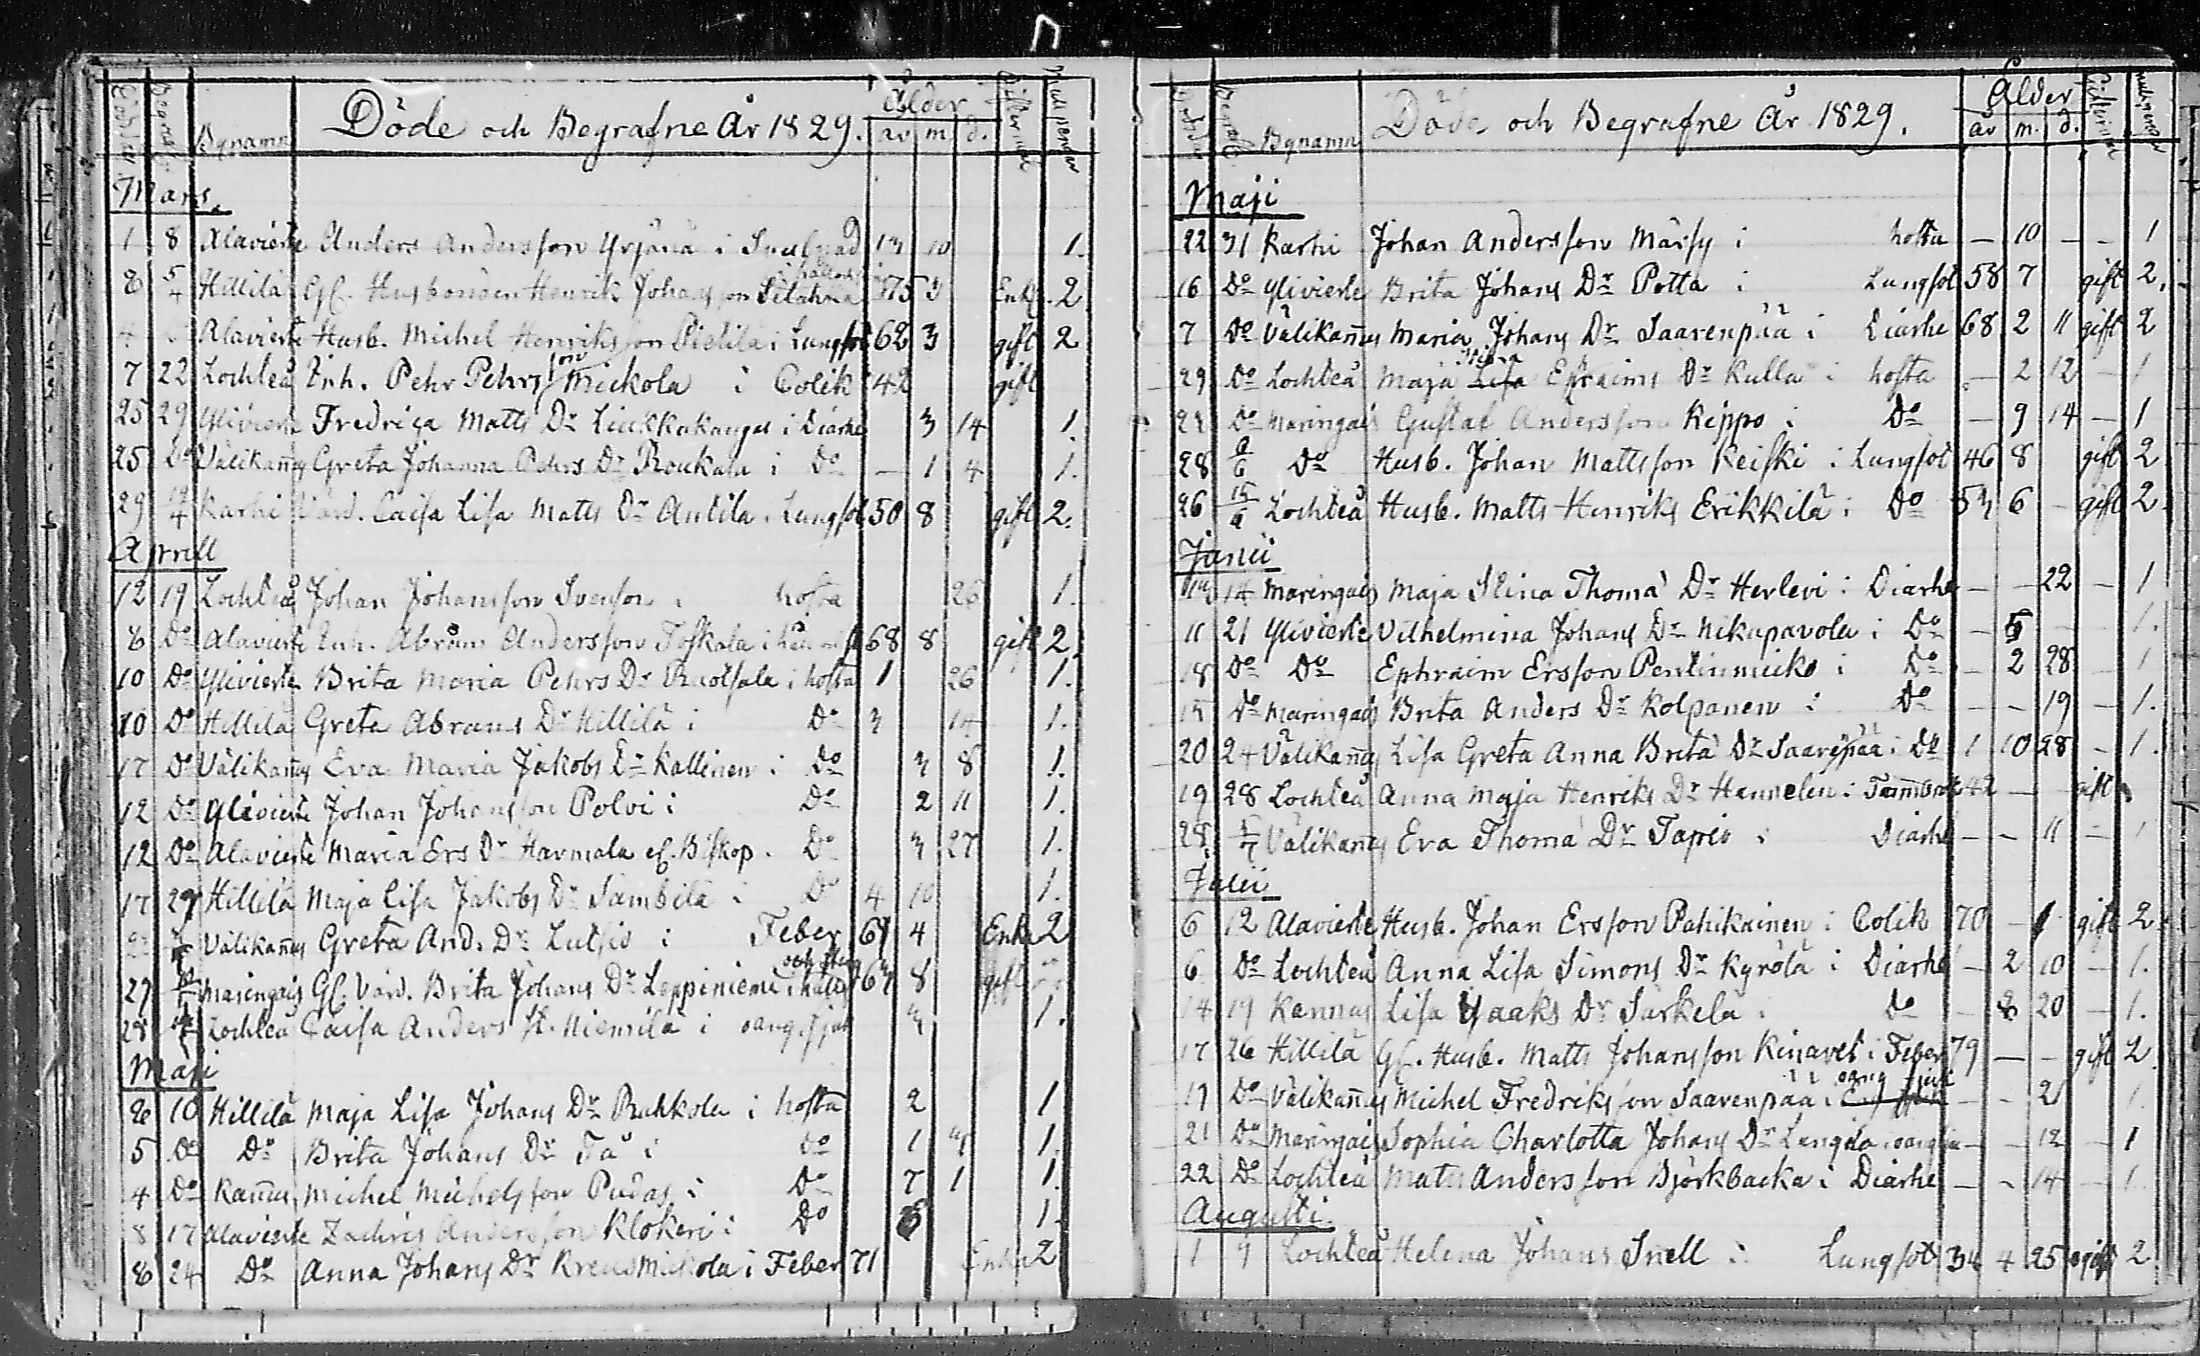 Döde och Begrafne År 1829.
Bynamn
Ålder
år m. d.
Mars.
1 8 Alavieste Anders Andersson Yrjänä i 13 10 1.
Hillilä Gl. Husbonden Henrik Johansson Silahna 75 3 Enkl. 2
4 Alavieste Husb. Michel Henriksson Pietilä i Lungsot 62 3 gift 2
7 22 Lochteå Inh. Pehr Pehrsson Mickola i Colik 42 gift
25 29 Ylivieste Fredrica Matts Dr Liukkukangas i Diarhe 3 14 1.
25 Do Välikangs Greta Johanna Pehrs Dr Roukala i Do — 1 4 1.
29 12/4 Karhi Värd. Caisa Lisa Matts Dr Antila i Lungsot 50 8 gift 2.
Aprill
12 19 Lochteå Johan Johansson Svenson i hosta 26 1.
6 Do Alavieste Inh. Abram Andersson Toskala i 68 8 gift 2.
10 Do Ylivieste Brita Maria Pehrs Dr Ruotsala i hosta 1 26 1.
10 Do Hillilä Greta Abrams Dr Hillilä i Do 3 14 1.
17 Do Välikangs Eva Maria Jakobs Dr Kallinen i Do 3 8 1.
12 Do Ylivieste Johan Johansson Polvi i Do 2 11 1.
12 Do Alavieste Maria Ers Dr Harmala el. Biskop. Do 3 27 1.
17 29 Hillilä Maja Lisa Jakobs Dr Sämbilä i Do 4 10 1.
Välikangs Greta And. Dr Lutsio i Feber 67 4 Enka 2
27 Maringais Gl. Värd. Brita Johans Dr Leppiniemi i 67 8 gift
28 Lochteå Caisa Anders Dr Niemilä i oang. sjuk 3 1.
Maji
2 10 Hillilä Maja Lisa Johans Dr Ruhkola i hosta 2 1
5 Do Do Brita Johans Dr Tå i Do 1 1.
4 Do Kannus Michel Michelsson Pudas i Do 7 1 1.
8 17 Alavieste Zachris Andersson Klokeri i Do 1.
8 24 Do Anna Johans Dr Kreus Mickola i Feber 71 Enka 2
Döde och Begrafne År 1829.
Bynamn
Ålder
år m. d.
Maji
22 31 Karhi Johan Andersson Märsy i hosta — 10 — — 1
16 Do Ylivieste Brita Johans Dr Potta i Lungsot 58 7 gift 2.
7 Do Välikannus Maria Johans Dr Saarenpää i Diarhe 68 2 11 gift 2
29 Do Lochteå Maja Stina Lisa Ephraims Dr Kulla i hosta — 2 12 — 1
22 Do Maringais Gustaf Andersson Keppo i Do — 9 14 — 1
28 9/6 Do Husb. Johan Mattsson Keiski i Lungsot 46 8 gift 2
26 15/6 Lochteå Husb. Matts Henriks Erikkilä i Do 53 6 — gift 2.
Junii
14 Maringais Maja Stina Thoma Dr Herlevi i Diarhe — — 22 — 1
11 21 Ylivieste Vilhelmina Johans Dr Nikupavola i Do — 5 — — 1.
18 Do Do Ephraim Ersson Pentinmicko i Do — 2 28 — 1
15 Do Maringais Brita Anders Dr Kolpanen i Do — — 19 — 1.
20 24 Välikangs Lisa Greta Anna Brita Dr Saarenpää i Do 1 10 28 — 1.
19 28 Lochteå Anna Maja Henriks Dr Hannelin i 42 — — gift
28 5/7 Välikangs Eva Thoma Dr Tapio i Diarhe — — 11 — 1
Julii
6 12 Alavieste Husb. Johan Ersson Pahikainen i Colik 70 — 1 gift 2.
6 Do Lochteå Anna Lisa Simons Dr Kyrölä i Diarhe — 2 10 — 1.
14 19 Kannus Lisa Isaaks Dr Särkelä i Do — 8 20 — 1.
17 26 Hillilä Gl. Husb. Matts Johansson Kinaret i Feber 79 — — gift 2
19 Do Välikannus Michel Fredriksson Saarenpää i oang sjuk — — 21 1.
21 Do Maringais Sophia Charlotta Johans Dr Langila i oang — — 12 — 1
22 Do Lochteå Matts Andersson Björkbacka i Diarhe — — 14 — 1.
Augusti.
1 9 Lochteå Helena Johans Snell i Lungsot 34 4 25 gift 2